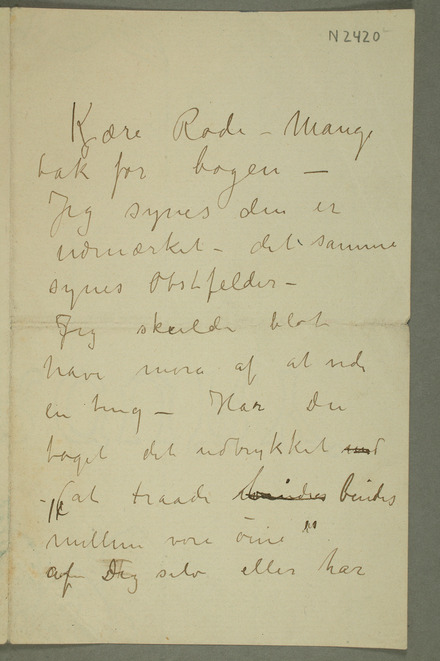 N2420
Kjære Rode – Mange
tak for bogen –
Jeg synes den er
udmærket – det samme
synes Obstfelder –
Jeg skulde blot
have mora af at vide
en ting – Har Du
taget det udtrykket
– "at traade bindes
mellem vore öine"
af Dig selv eller har